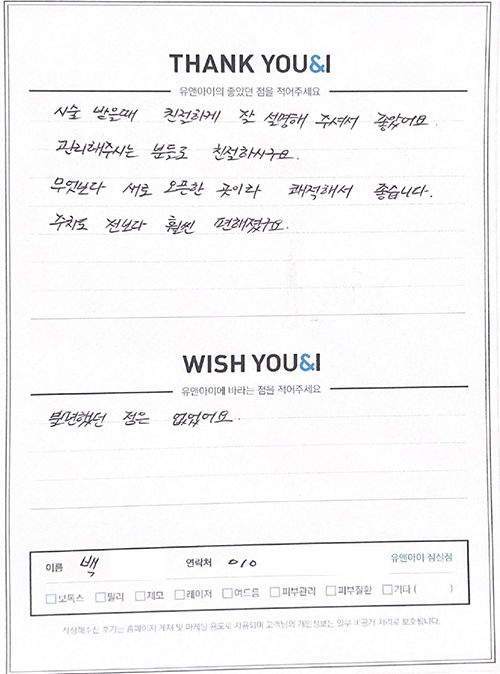 THANK YOU&I
유앤아이의 좋았던 점을 적어주세요
시술 받을때 친절하게 잘 설명해 주셔서 좋았어요.
관리해주시는 분들도 친절하시구요.
무엇보다 새로 오픈한 곳이라 쾌적해서 좋습니다.
주차도 전보다 훨씬 편해졌구요.
WISH YOU&I
유앤아이에 바라는 점을 적어주세요
불편했던 점은 없었어요.
이름 백 연락처 010 유앤아이 잠실점
보톡스 필러 제모 레이저 여드름 피부관리 피부질환 기타 ( )
작성해주신 후기는 홈페이지 게재 및 마케팅 용도로 사용되며 고객님의 개인정보는 일부 비공개 처리로 보호됩니다.